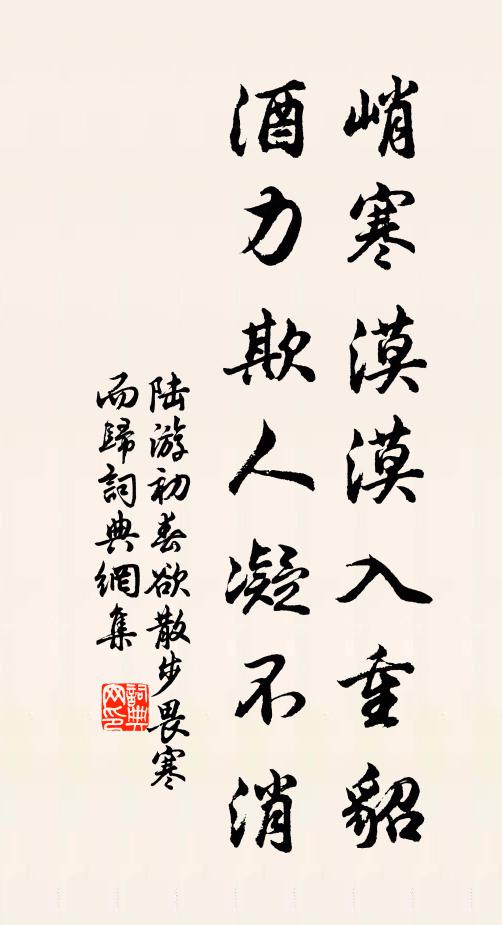 峭寒漠漠入重貂
酒力欺人凝不消
陆游初春欲散步畏寒
而歸詞典網集
詞典
网印